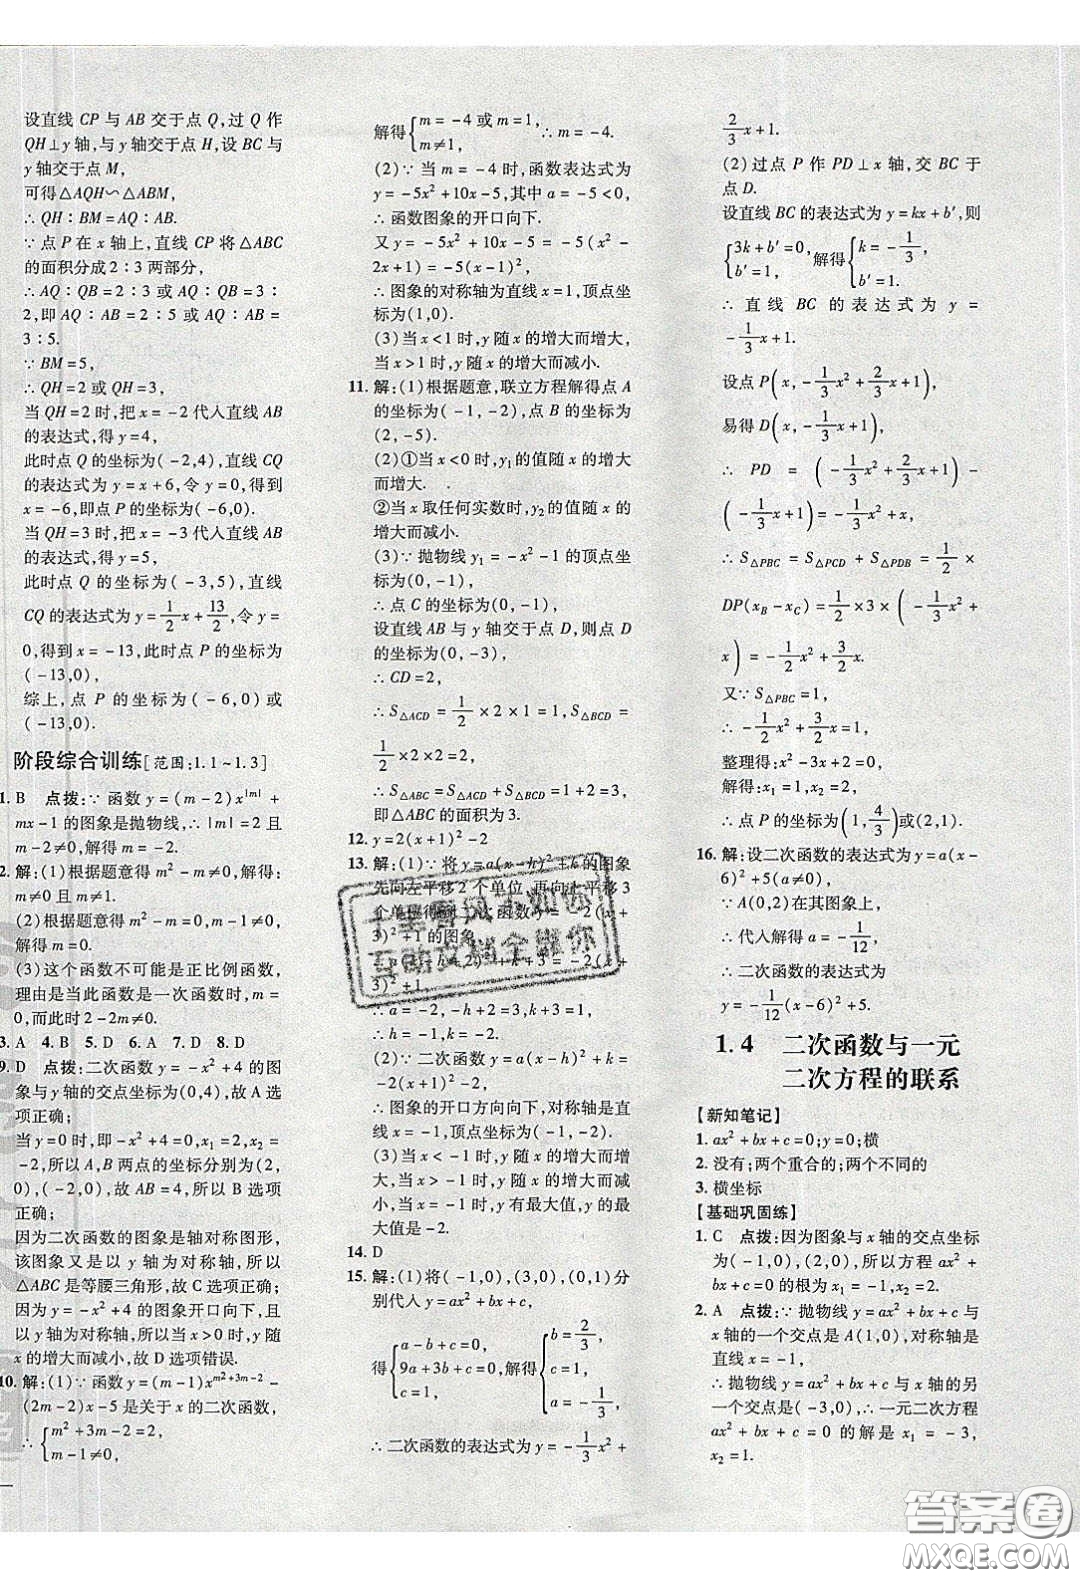 设直线 CP 与 AB 交于点 Q,过 Q 作
QH⊥y 轴,与 y 轴交于点 H,设 BC 与
y 轴交于点 M,
可得△AQH∽△ABM,
∴ QH∶BM=AQ∶AB.
∵ 点 P 在 x 轴上,直线 CP 将△ABC
的面积分成 2∶3 两部分,
∴ AQ∶QB=2∶3 或 AQ∶QB=3∶
2,即 AQ∶AB=2∶5 或 AQ∶AB=
3∶5.
∵ BM=5,
∴ QH=2 或 QH=3,
当 QH=2 时,把 x=-2 代入直线 AB
的表达式,得 y=4,
此时点 Q 的坐标为(-2,4),直线 CQ
的表达式为 y=x+6,令 y=0,得到
x=-6,即点 P 的坐标为(-6,0).
当 QH=3 时,把 x=-3 代入直线 AB
的表达式,得 y=5,
此时点 Q 的坐标为(-3,5),直线
CQ 的表达式为 y=1/2x+13/2,令 y=
0,得到 x=-13,此时点 P 的坐标为
(-13,0),
综上,点 P 的坐标为(-6,0)或
(-13,0).
阶段综合训练[范围:1.1~1.3]
1. B 点拨:∵ 函数 y=(m-2)x^|m|+
mx-1 的图象是抛物线,∴ |m|=2 且
m-2≠0,解得 m=-2.
2. 解:(1)根据题意得 m²-m≠0,解得:
m≠0 且 m≠1.
(2)根据题意得 m²-m=0,且 m-1≠
0,解得:m=0.
(3)这个函数不可能是正比例函数,
理由是当此函数是一次函数时,m=
0,而此时 2-2m≠0.
3. A 4. B 5. D 6. A 7. D 8. D
9. D 点拨:二次函数 y=-x²+4 的图
象与 y 轴的交点坐标为(0,4),故 A 选
项正确;
当 y=0 时,即-x²+4=0,x₁=2,x₂=
-2,所以 A,B 两点的坐标分别为(2,
0),(-2,0),故 AB=4,所以 B 选项
正确;
因为二次函数的图象是轴对称图形,
该图象又是以 y 轴为对称轴,所以
△ABC 是等腰三角形,故 C 选项正确;
因为 y=-x²+4 的图象开口向下,且
以 y 轴为对称轴,所以当 x>0 时,y 随
x 的增大而减小,故 D 选项错误.
10. 解:(1)∵ 函数 y=(m-1)x^(m²+3m-2)-
(2m-2)x-5 是关于 x 的二次函数,
∴ {m²+3m-2=2,
m-1≠0,
解得{m=-4 或 m=1,
m≠1, ∴ m=-4.
(2)∵ 当 m=-4 时,函数表达式为
y=-5x²+10x-5,其中 a=-5<0,
∴ 函数图象的开口向下.
又 y=-5x²+10x-5=-5(x²-
2x+1)=-5(x-1)²,
∴ 图象的对称轴为直线 x=1,顶点坐
标为(1,0).
(3)当 x<1 时,y 随 x 的增大而增大,
当 x>1 时,y 随 x 的增大而减小.
11. 解:(1)根据题意,联立方程解得点 A
的坐标为(-1,-2),点 B 的坐标为
(2,-5).
(2)①当 x<0 时,y₁的值随 x 的增大
而增大.
②当 x 取任何实数时,y₂的值随 x 的
增大而减小.
(3)∵ 抛物线 y₁=-x²-1 的顶点坐
标为(0,-1),
∴ 点 C 的坐标为(0,-1),
设直线 AB 与 y 轴交于点 D,则点 D
的坐标为(0,-3),
∴ CD=2,
∴ S△ACD=1/2×2×1=1,S△BCD=
1/2×2×2=2,
∴ S△ABC=S△ACD+S△BCD=1+2=3,
即△ABC 的面积为 3.
12. y=2(x+1)²-2
13. 解:(1)∵ 将 y=a(x-h)²+k 的图象
先向左平移 2 个单位,再向上平移 3
个单位得到二次函数 y=-2(x+
3)²+1 的图象,
∴ a(x-h+2)²+k+3=-2(x+
3)²+1,
∴ a=-2,-h+2=3,k+3=1,
∴ h=-1,k=-2.
(2)∵ 二次函数 y=a(x-h)²+k=
-2(x+1)²-2,
∴ 图象的开口方向向下,对称轴是直
线 x=-1,顶点坐标为(-1,-2).
当 x<-1 时,y 随 x 的增大而增
大,当 x>-1 时,y 随 x 的增大而
减小,当 x=-1 时,y 有最大值,y 的
最大值是-2.
14. D
15. 解:(1)将(-1,0),(3,0),(0,1)分
别代入 y=ax²+bx+c,
得{a-b+c=0,
9a+3b+c=0,
c=1, 解得{b=2/3,
c=1,
a=-1/3,
∴ 二次函数的表达式为 y=-1/3x²+
2/3x+1.
(2)过点 P 作 PD⊥x 轴,交 BC 于
点 D.
设直线 BC 的表达式为 y=kx+b′,则
{3k+b′=0,
b′=1, 解得{k=-1/3,
b′=1.
∴ 直线 BC 的表达式为 y=
-1/3x+1.
设点 P(x,-1/3x²+2/3x+1),
易得 D(x,-1/3x+1),
∴ PD=(-1/3x²+2/3x+1)-
(-1/3x+1)=-1/3x²+x,
∴ S△PBC=S△PCD+S△PDB=1/2×
DP(xB-xC)=1/2×3×(-1/3x²+
x)=-1/2x²+3/2x.
又∵ S△PBC=1,
∴ -1/2x²+3/2x=1.
整理得:x²-3x+2=0.
解得:x₁=1,x₂=2.
∴ 点 P 的坐标为(1,4/3)或(2,1).
16. 解:设二次函数的表达式为 y=a(x-
6)²+5.
∵ A(0,2)在其图象上,
∴ 代入解得 a=-1/12,
∴ 二次函数的表达式为
y=-1/12(x-6)²+5.
1.4 二次函数与一元
二次方程的联系
【新知笔记】
1. ax²+bx+c=0;y=0;横
2. 没有;两个重合的;两个不同的
3. 横坐标
【基础巩固练】
1. C 点拨:因为图象与 x 轴的交点坐标
为(-1,0),(2,0),所以方程 ax²+
bx+c=0 的根为 x₁=-1,x₂=2.
2. A 点拨:∵ 抛物线 y=ax²+bx+c 与
x 轴的一个交点是 A(1,0),对称轴为
直线 x=-1,
∴ 抛物线 y=ax²+bx+c 与 x 轴的另
一个交点是(-3,0),∴ 一元二次方程
ax²+bx+c=0 的解是 x₁=-3,
x₂=1.
答案卷
MXQE.COM